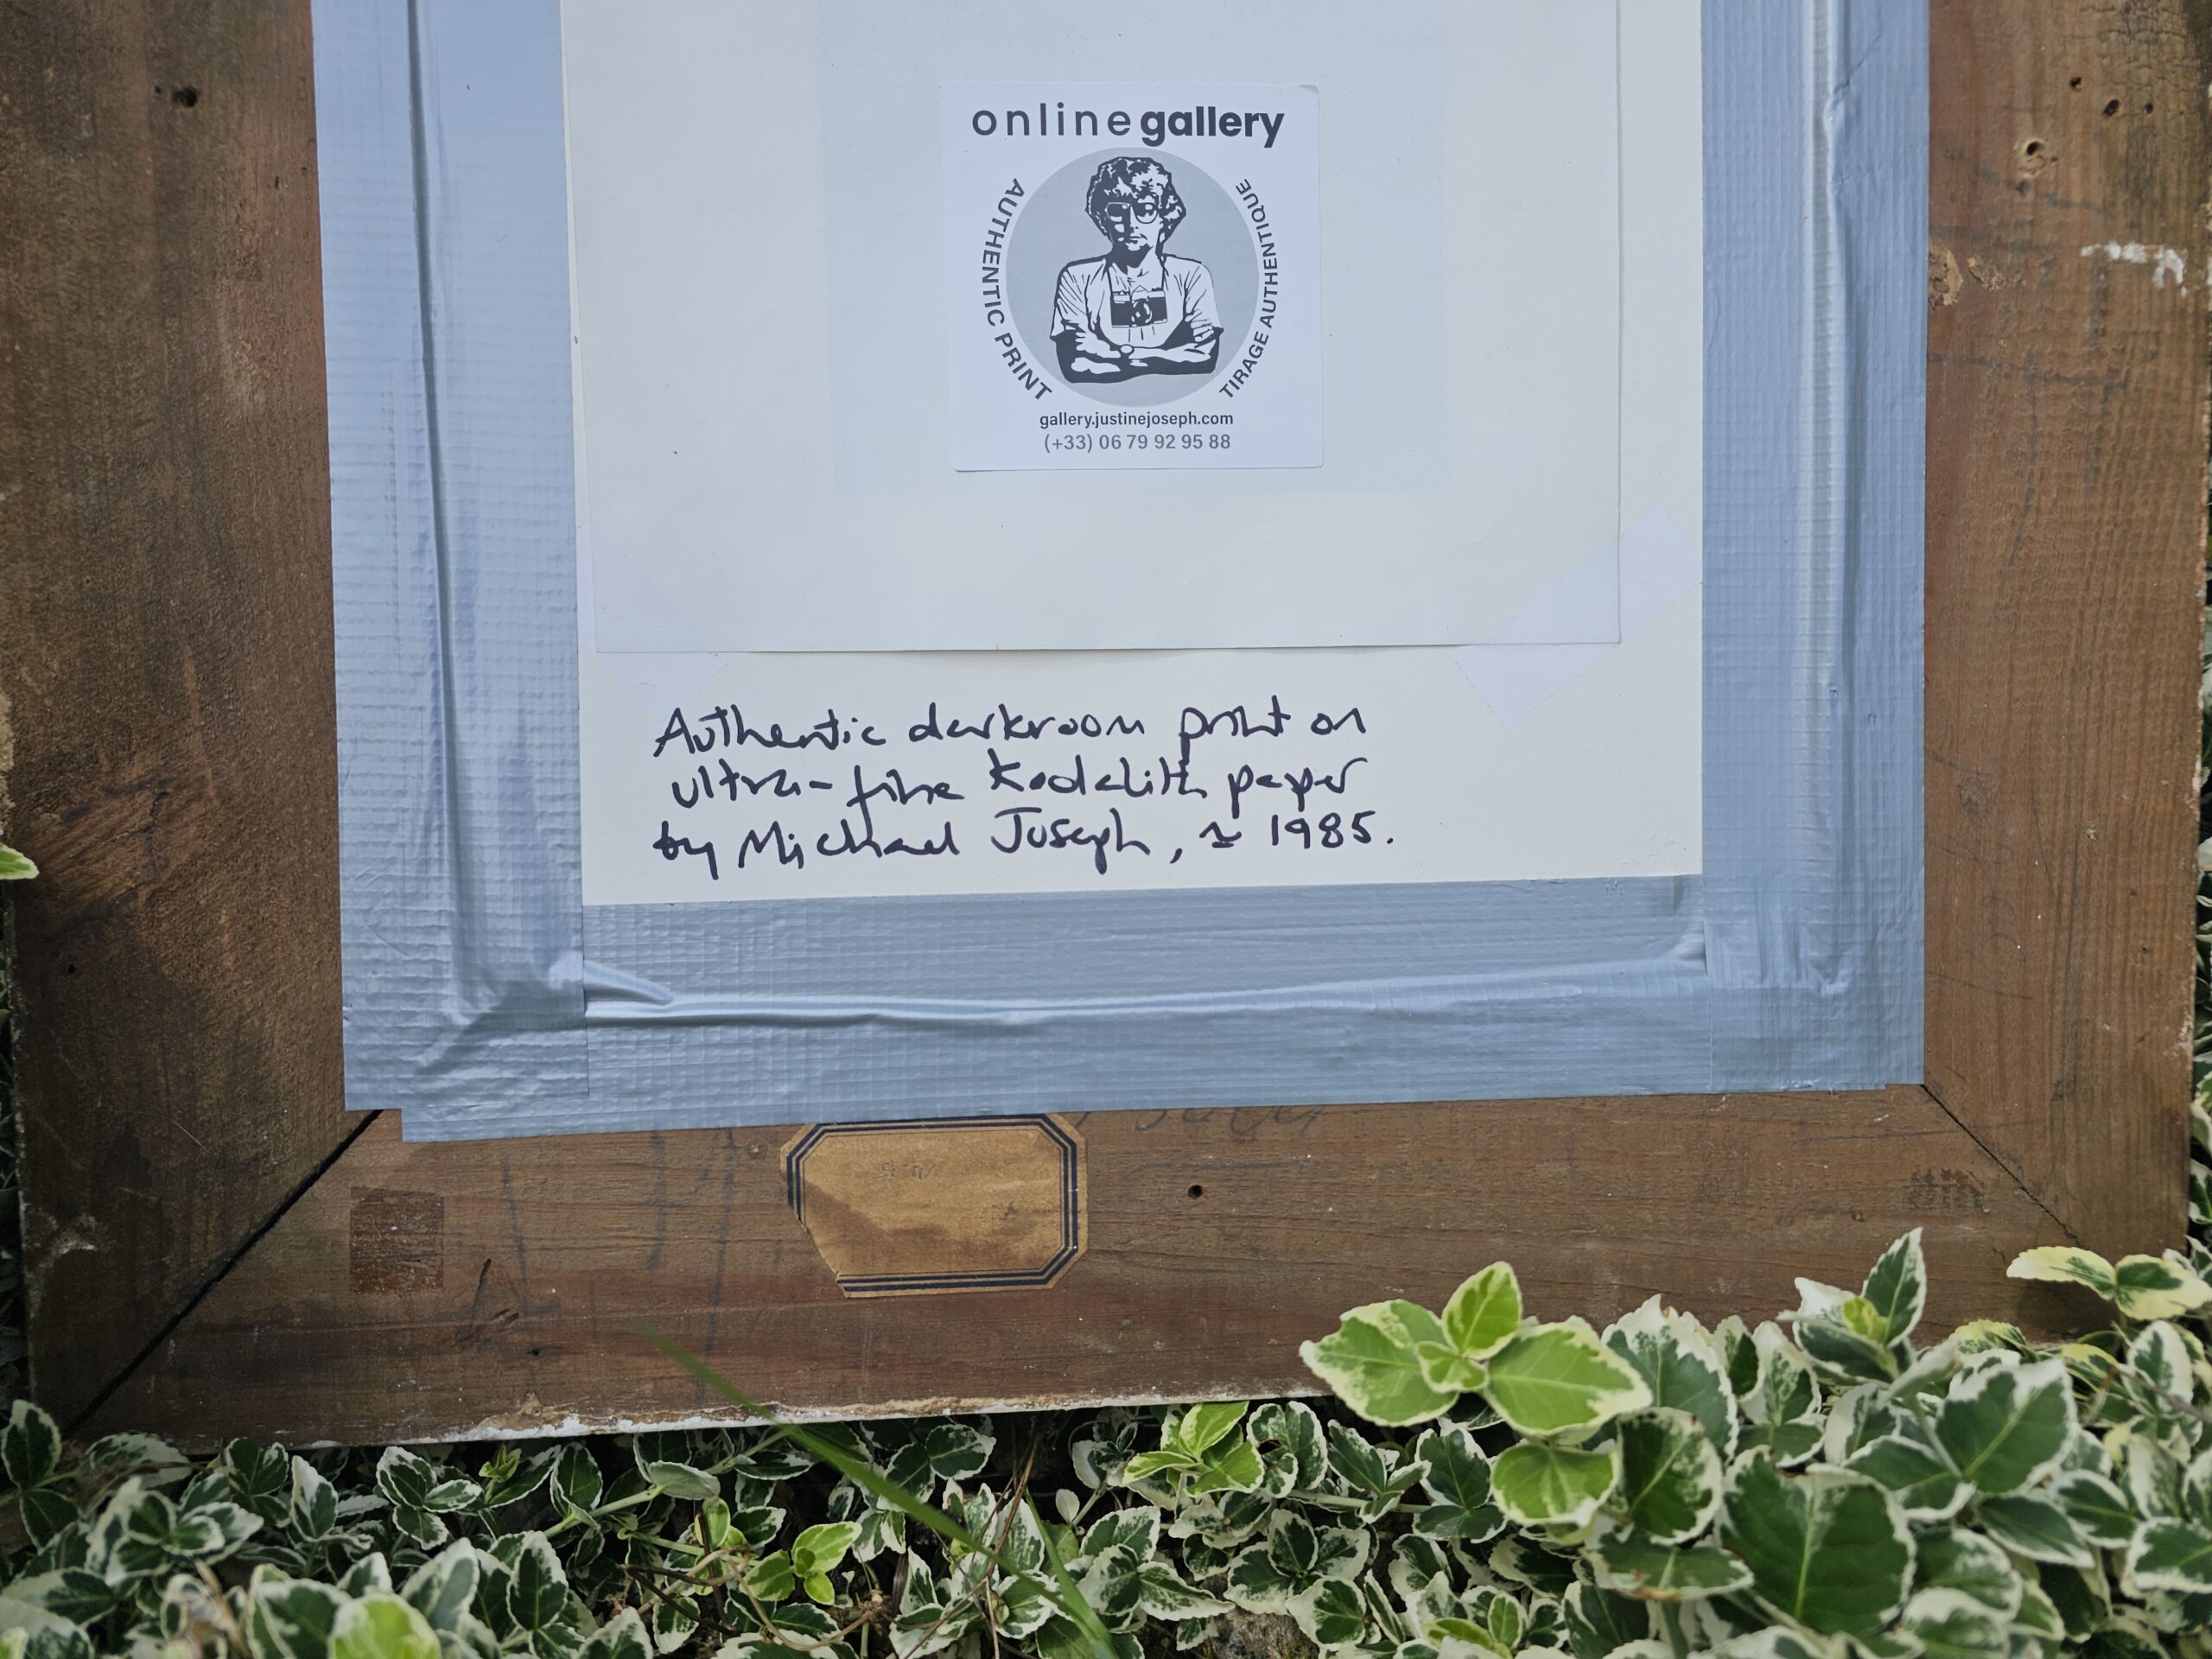 onlinegallery
AUTHENTIC PRINT
TIRAGE AUTHENTIQUE
gallery.justinejoseph.com
(+33) 06 79 92 95 88
Authentic darkroom print on
ultra-fine Kodalith paper
by Michael Joseph, ≈ 1985.